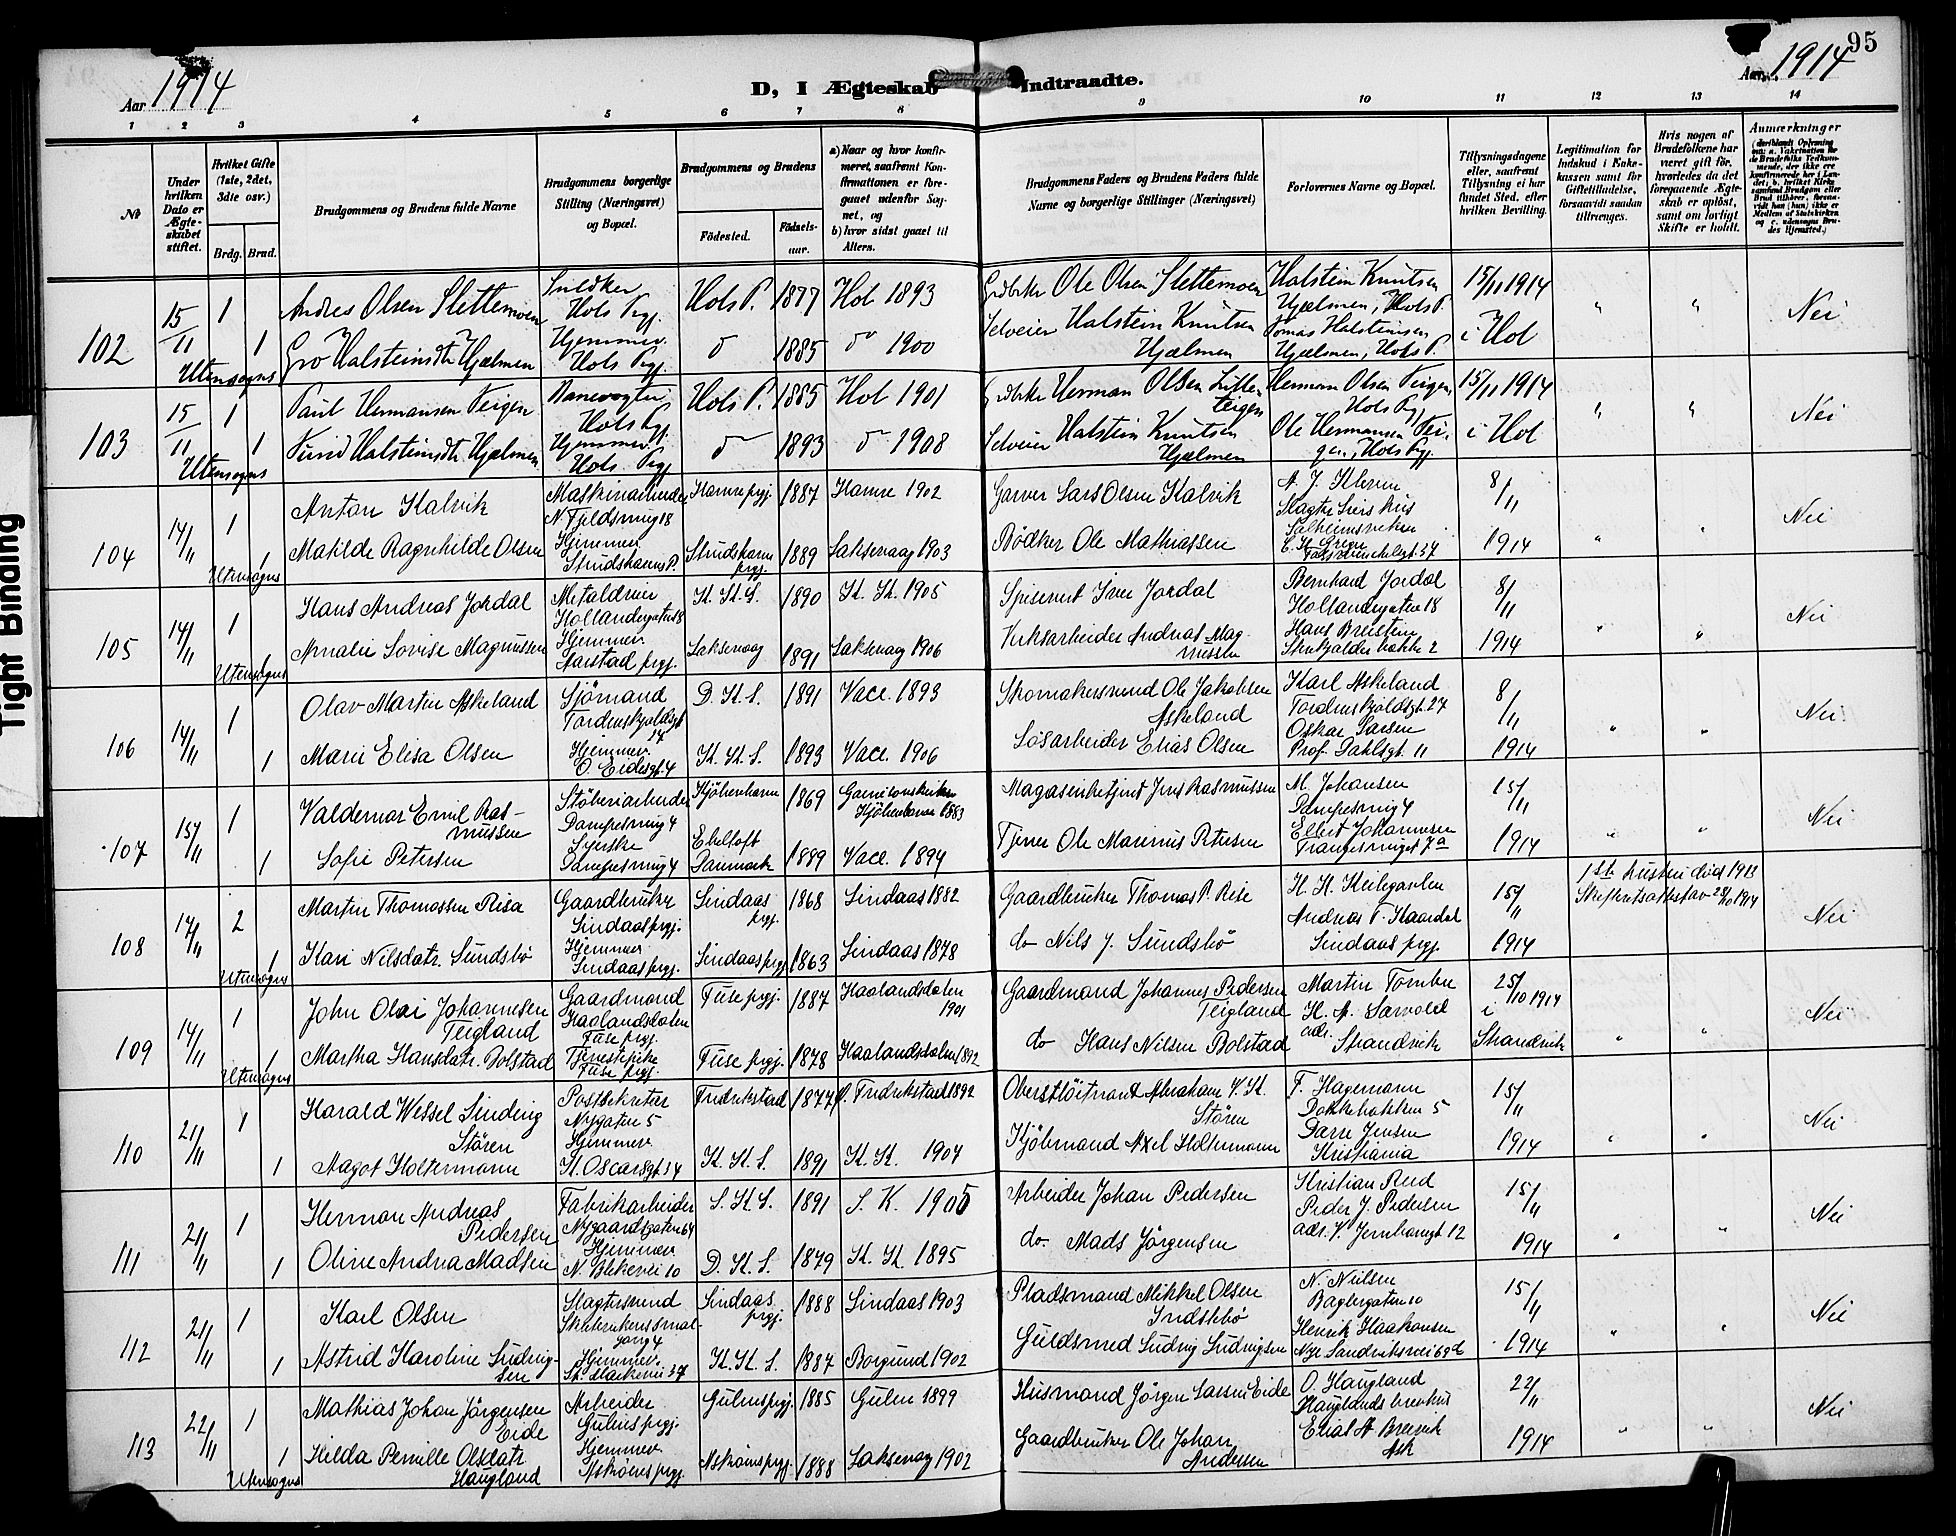 95
Aar 1914
D, I Ægteskab Indtraadte.
Aar 1914
1 2 3 4 5 6 7 8 9 10 11 12 13 14
№
Under hvilken Dato er Ægteskabet stiftet.
Hvilket Gifte (1ste, 2det, 3dte osv.)
Brdg. Brud.
Brudgommens og Brudens fulde Navne
Brudgommens borgerlige Stilling (Næringsvei) og Bopæl.
Brudgommens og Brudens
Fødested.
Fødselsaar.
a) Naar og hvor konfirmeret, saafremt Konfirmationen er foregaaet udenfor Sognet, og
b) hvor sidst gaaet til Alters.
Brudgommens Faders og Brudens Faders fulde Navne og borgerlige Stillinger (Næringsvei)
Forlovernes Navne og Bopæl.
Tillysningsdagene eller, saafremt Tillysning ei har fundet Sted, efter hvilken Bevilling.
Legitimation for Indskud i Enkekassen samt for Giftetilladelse, forsaavidt saadan tiltrænges.
Hvis nogen af Brudefolkene har været gift før, hvorledes da det foregaaende Ægteskab er opløst, samt om lovligt Skifte er holdt.
Anmærkninger
102 15/11 1 Andres Olsen Slettemoen Snedker Hols Prgj. Hols P. 1877 Hol 1893 Grdbrker Ole Olsen Slettemoen Halstein Knutsen Hjælmen, Hols P. 15/11 1914 " " Nei
1 Gro Halsteinsdtr Hjælmen Hjemmev. Hols Prgj. do 1885 do 1900 Selveier Halstein Knutsen Hjælmen Tomas Halsteinsen Hjælmen, Hols P. i Hol
Utensogns
103 15/11 1 Paul Hermansen Teigen Banevogter Hols Prgj. Hols P. 1885 Hol 1901 Grdbrker Herman Olsen Litleteigen Herman Olsen Teigen Hols Prgj 15/11 1914 " " Nei
1 Halsteinsdtr Hjælmen Hjemmev. Hols Prgj do 1893 do 1908 Selveier Halstein Knutsen Hjælmen Ole Hermansen Teigen, Hols Prgj. i Hol
Utensogns
104 14/11 1 Anton Kalvik Maskinarbeider N. Fjeldsmug 18 Hamre prgj. 1887 Hamre 1902 Garver Lars Olsen Kalvik 8/11 " " Nei
1 Matilde Ragnhilde Olsen Hjemmev. Strudshavns P. Strudshavns prgj. 1889 Laksevaag 1903 Bødker Ole Mathiassen Solheimsviken 1914
Utensogns
105 14/11 1 Hans Andreas Jordal Metaldreier Hollendergaten 18 K. K. S. 1890 K. K. 1905 Spisevert Iver Jordal Bernhard Jordal Hollendergaten 18 8/11 " " Nei
1 Amalie Lovise Magnussen Hjemmev. Aarstad prgj. Laksevaag 1891 Laksevaag 1906 Verksarbeider Andreas Magnussen Hans Breistein 1914
Utensogns
106 14/11 1 Olav Martin Askeland Sjømand Tordenskjoldsgt 27 D. K. S. 1891 Vacc. 1893 Skomakersvend Ole Jakobsen Askeland Karl Askeland Tordenskjoldsgt. 27 8/11 " " Nei
1 Marie Elisa Olsen Hjemmev. O. Eidesgt. 4 K. K. S. 1893 Vacc. 1906 Løsarbeider Elias Olsen Oskar Larsen Prof. Dahlsgt. 11 1914
107 15/11 1 Valdemar Emil Rasmussen Støberiarbeider Damsgesmug 4 Kjøbenhavn 1869 Garnisonskirken Kjøbenhavn 1883 Magasinbetjent Jens Rasmussen M. Johansen 15/11 " " Nei
1 Sofie Petersen Syerske Ebeltoft Danmark 1889 Vacc. 1894 Tjener Ole Marinus Petersen Elbert Johannesen 1914
108 14/11 2 Martin Thomassen Risa Gaardbruker Lindaas prgj. Lindaas prgj. 1868 Lindaas 1882 Gaardbruker Thomas P. Rise 15/11 1st hustru død 1913 Skifteretsattest av 28/10 1914 Nei
1 Kari Nilsdatr. Sundsbø Hjemmev. Lindaas prgj. Lindaas prgj 1863 Lindaas 1878 do Nils J. Sundsbø Andreas T. Haardal Lindaas prgj. 1914
Utensogns
109 14/11 1 John Olai Johannesen Teigland Gaardmand Haalandsdalen Fuse prgj. Fuse prgj. 1887 Haalandsdalen 1901 Gaardmand Johannes Pedersen Teigland Martin Tombre 25/10 1914 " " Nei
1 Martha Hansdatr. Bolstad Tjenestepike Fuse prgj. Fuse prgj. 1878 Haalandsdalen 1892 do Hans Nilsen Bolstad H. A. Sævold adr. Strandvik i Strandvik
Utensogns
110 21/11 1 Harald Wessel Sinding Støren Postsekretær Nygaten 5 Fredrikstad 1877 V. Fredrikstad 1892 Oberstløitnant Abraham V. H. Støren F. Hagemann Dokkebakken 5 15/11 " " Nei
1 Magot Holtermann Hjemmev. K. Oscarsgt. 34 K. K. S. 1891 K. K. 1907 Kjøbmand Axel Holtermann Jensen Kristiania 1914
111 21/11 1 Herman Andreas Pedersen Fabrikarbeider Nygaardsgaten 64 S. K. S. 1891 S. K. 1905 Arbeider Johan Pedersen Kristian Reed 15/11 " " Nei
1 Oline Andrea Madsen Hjemmev. N. Blekevei 10 D. K. S. 1879 K. K. 1895 do. Mads Jørgensen Peder J. Pedersen adr. V. Jernbanegt 12 1914
112 21/11 1 Karl Olsen Slagtersvend Lindaas prgj. 1888 Lindaas 1903 Pladsmand Mikkel Olsen Indstebø N. Nielsen Baglergaten 10 15/11 " " Nei
1 Astrid Karoline Ludvigsen Hjemmev. St. Markevei 37 K. K. S. 1887 Borgund 1902 Guldsmed Ludvig Ludvigsen Henrik Haakonsen Nye Sandviksvei 69d 1914
113 22/11 1 Mathias Johan Jørgensen Eide Arbeider Gulens prgj. Gulens prgj. 1885 Gulen 1899 Husmand Jørgen Lassen Eide O. Haugland 22/11 " " Nei
1 Hilda Pernille Olsdatr Haugland Hjemmev. Askøens prgj. Askøens prgj. 1888 Laksevaag 1902 Gaardbruker Ole Johan Andersen Elias A Breivik Ask 1914
Utensogns
Tight Binding